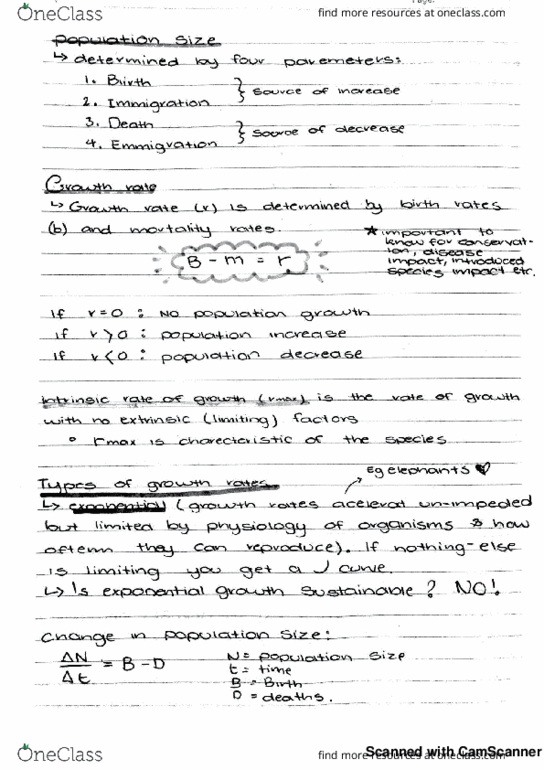 Page:
OneClass
find more resources at oneclass.com
Population Size
↳ determined by four paremeters:
1. Birth
2. Immigration
} source of increase
3. Death
4. Emmigration
} source of decrease
Growth rate
↳ Growth rate (r) is determined by birth rates
(b) and mortality rates.
B - m = r
* important to
know for conservat-
ion, disease
impact, introduced
species impact etc.
If r=0 : No population growth
If r>0 : population increase
If r<0 : population decrease
Intrinsic rate of growth (rmax) is the rate of growth
with no extrinsic (limiting) factors
° rmax is charecteristic of the species
Types of growth rates
eg elephants ♥
↳ exponential (growth rates acelerat un-impeded
but limited by physiology of organisms & how
oftenn they can reproduce). If nothing-else
is limiting you get a J curve.
↳ Is exponential growth sustainable? NO!
Change in population size:
ΔN/Δt = B-D
N= population size
t = time
B = Birth
D = deaths.
OneClass
find more resources at oneclass.com
Scanned with CamScanner